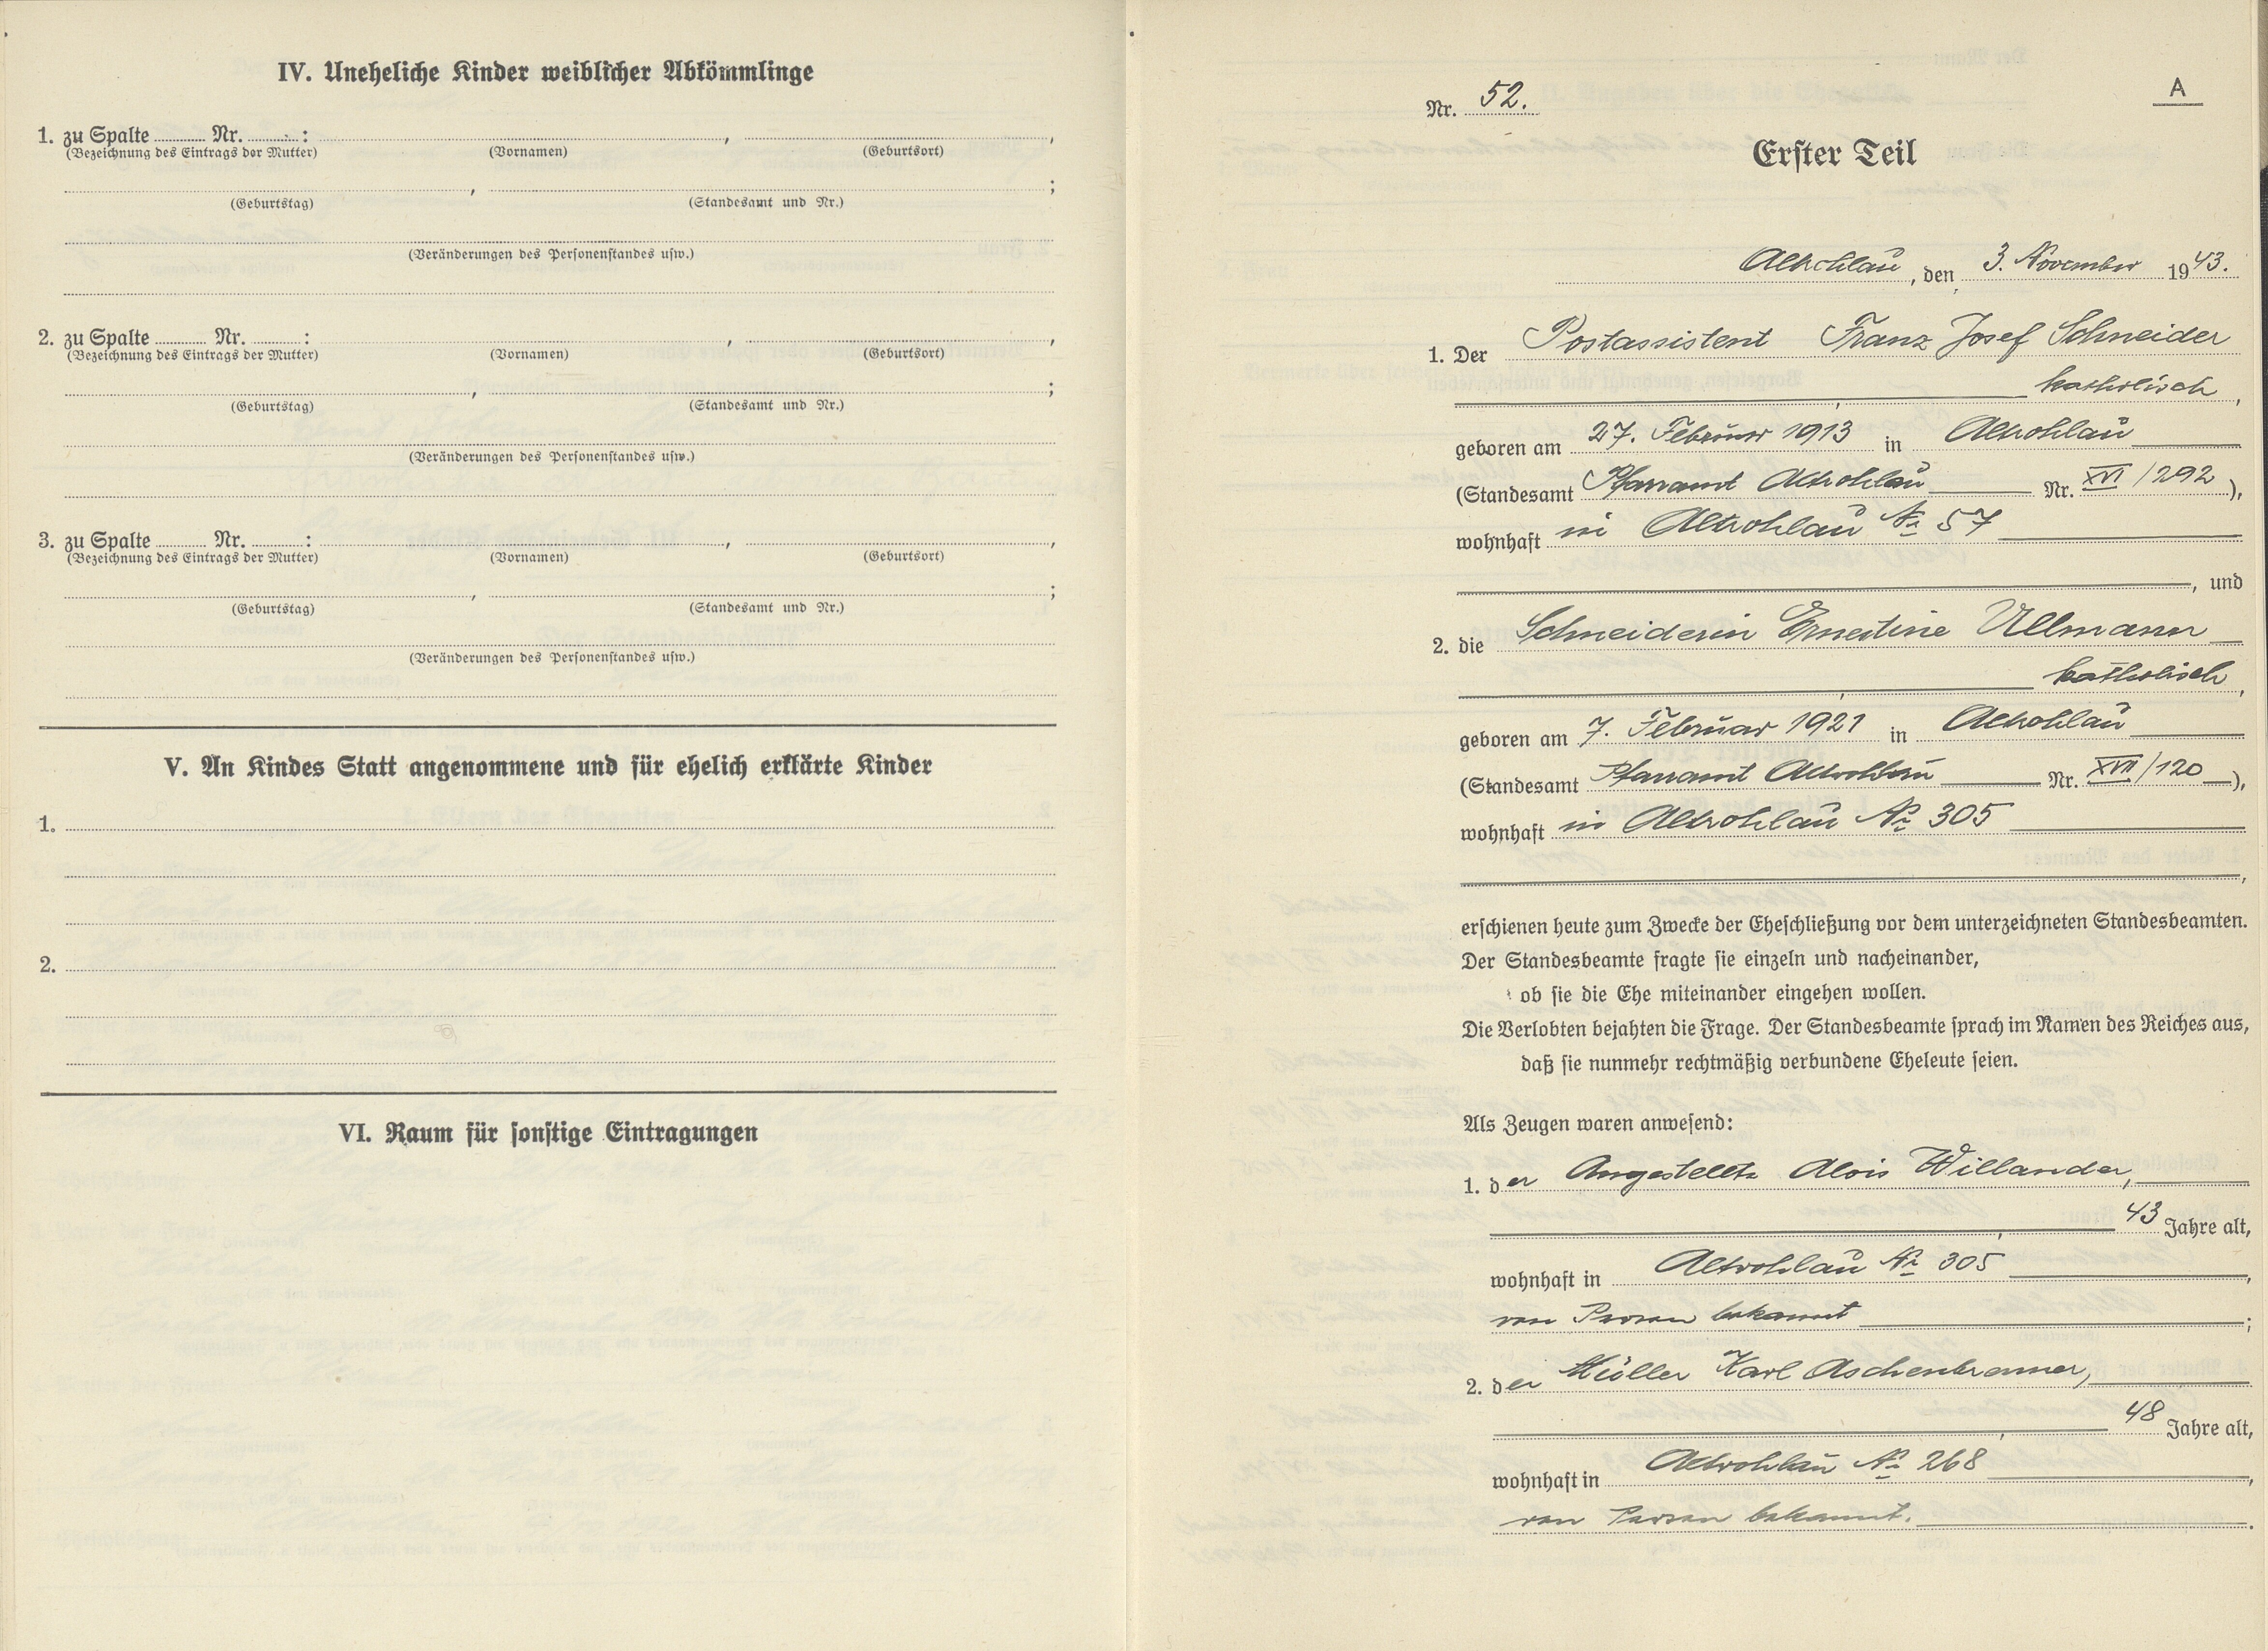 IV. Uneheliche Kinder weiblicher Abkömmlinge
1. zu Spalte ........ Nr. ........ : , ,
(Bezeichnung des Eintrags der Mutter) (Vornamen) (Geburtsort)
, ;
(Geburtstag) (Standesamt und Nr.)
(Veränderungen des Personenstandes usw.)
2. zu Spalte ........ Nr. ........ : , ,
(Bezeichnung des Eintrags der Mutter) (Vornamen) (Geburtsort)
, ;
(Geburtstag) (Standesamt und Nr.)
(Veränderungen des Personenstandes usw.)
3. zu Spalte ........ Nr. ........ : , ,
(Bezeichnung des Eintrags der Mutter) (Vornamen) (Geburtsort)
, ;
(Geburtstag) (Standesamt und Nr.)
(Veränderungen des Personenstandes usw.)
V. An Kindes Statt angenommene und für ehelich erklärte Kinder
1.
2.
VI. Raum für sonstige Eintragungen
A
Nr. 52.
Erster Teil
Altrohlau, den 3. November 1943.
1. Der Postassistent Franz Josef Schneider
katholisch,
geboren am 27. Februar 1913 in Altrohlau
(Standesamt Pfarramt Altrohlau Nr. XVI/292),
wohnhaft in Altrohlau No 57
, und
2. die Schneiderin Ernestine Ullmann
katholisch,
geboren am 7. Februar 1921 in Altrohlau
(Standesamt Pfarramt Altrohlau Nr. XVII/120),
wohnhaft in Altrohlau No 305
,
erschienen heute zum Zwecke der Eheschließung vor dem unterzeichneten Standesbeamten.
Der Standesbeamte fragte sie einzeln und nacheinander,
ob sie die Ehe miteinander eingehen wollen.
Die Verlobten bejahten die Frage. Der Standesbeamte sprach im Namen des Reiches aus,
daß sie nunmehr rechtmäßig verbundene Eheleute seien.
Als Zeugen waren anwesend:
1. der Angestellte Alois Willander,
43 Jahre alt,
wohnhaft in Altrohlau No 305,
von Person bekannt;
2. der Müller Karl Aschenbrenner,
48 Jahre alt,
wohnhaft in Altrohlau No 268,
von Person bekannt.